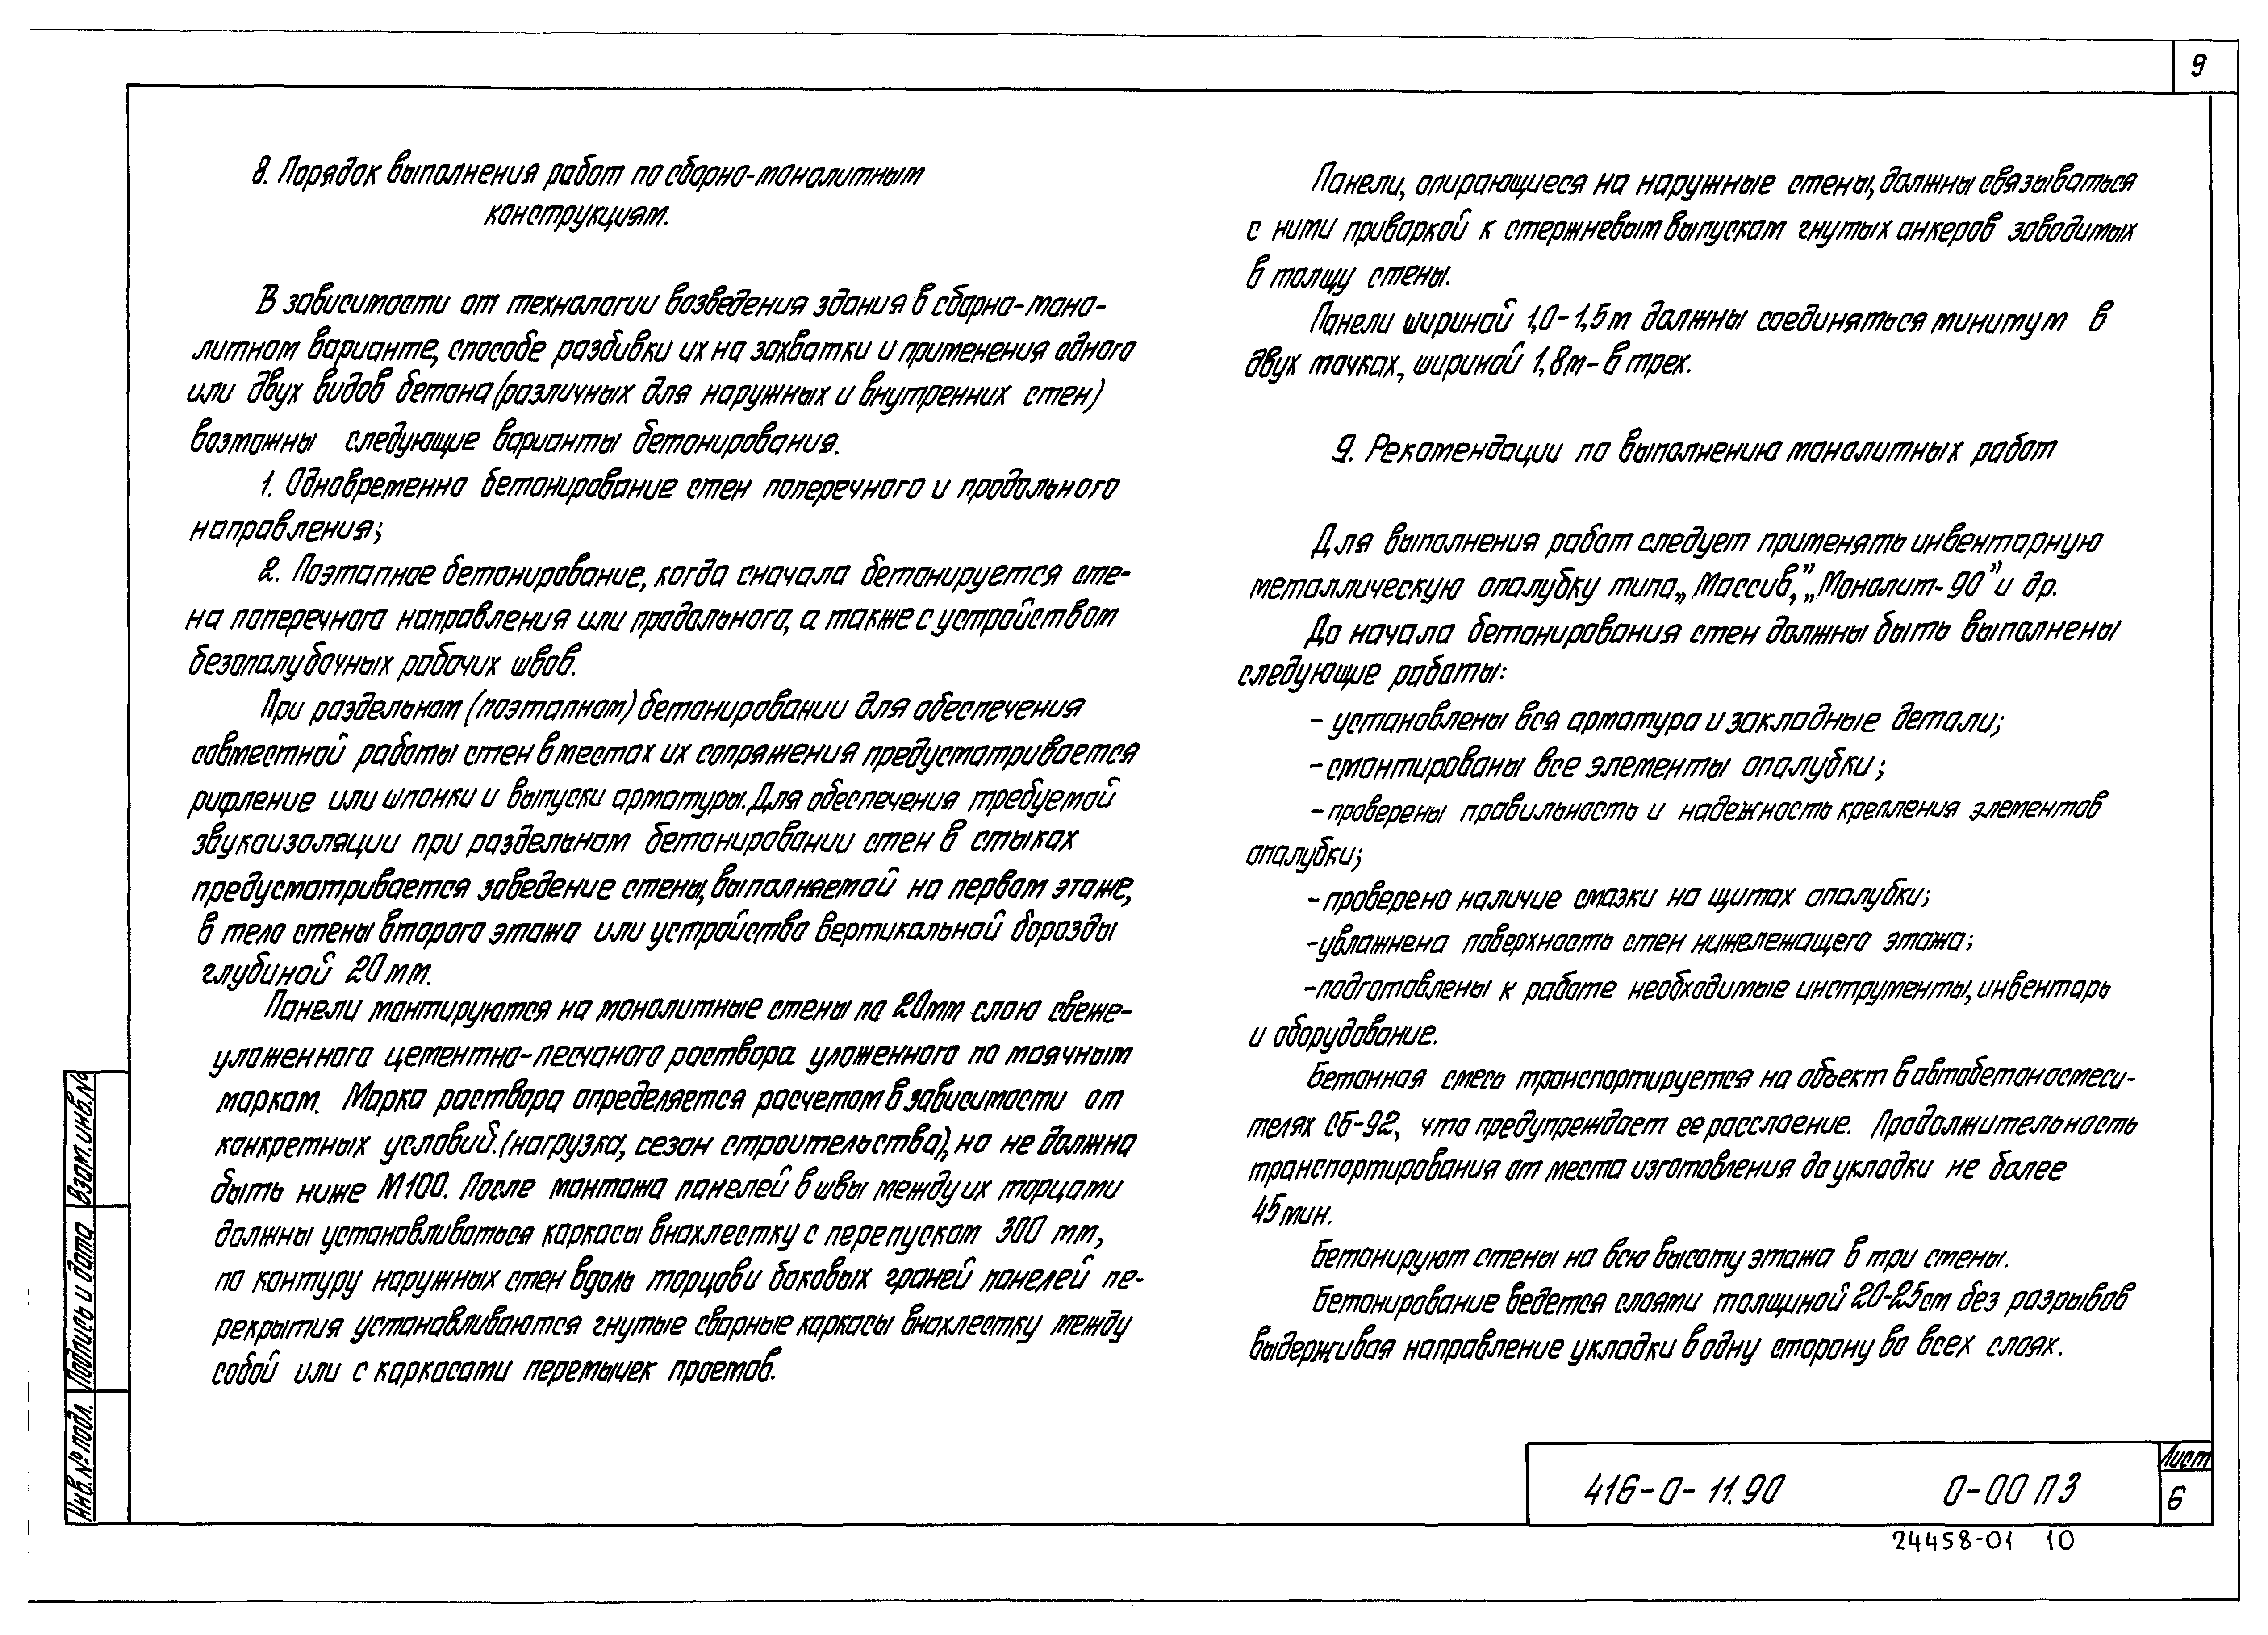 9
8. Порядок выполнения работ по сборно-монолитным
конструкциям.
В зависимости от технологии возведения здания в сборно-моно-
литном варианте, способе разбивки их на захватки и применения одного
или двух видов бетона (различных для наружных и внутренних стен)
возможны следующие варианты бетонирования.
1. Одновременно бетонирование стен поперечного и продольного
направления;
2. Поэтапное бетонирование, когда сначала бетонируется сте-
на поперечного направления или продольного, а также с устройством
безопалубочных рабочих швов.
При раздельном (поэтапном) бетонировании для обеспечения
совместной работы стен в местах их сопряжения предусматривается
рифление или шпонки и выпуски арматуры. Для обеспечения требуемой
звукоизоляции при раздельном бетонировании стен в стыках
предусматривается заведение стены, выполняемой на первом этаже,
в тело стены второго этажа или устройство вертикальной борозды
глубиной 20 мм.
Панели монтируются на монолитные стены по 20мм слою свеже-
уложенного цементно-песчаного раствора уложенного по маячным
маркам. Марка раствора определяется расчетом в зависимости от
конкретных условий. (нагрузка, сезон строительства), но не должна
быть ниже М100. После монтажа панелей в швы между их торцами
должны устанавливаться каркасы внахлестку с перепуском 300 мм,
по контуру наружных стен вдоль торцов и боковых граней панелей пе-
рекрытия устанавливаются гнутые сварные каркасы внахлестку между
собой или с каркасами перемычек проемов.
Панели, опирающиеся на наружные стены, должны связываться
с ними приваркой к стержневым выпускам гнутых анкеров заводимых
в толщу стены.
Панели шириной 1,0-1,5м должны соединяться минимум в
двух точках, шириной 1,8м - в трех.
9. Рекомендации по выполнению монолитных работ
Для выполнения работ следует применять инвентарную
металлическую опалубку типа „Массив," „Монолит-90" и др.
До начала бетонирования стен должны быть выполнены
следующие работы:
- установлены вся арматура и закладные детали;
- смонтированы все элементы опалубки;
- проверены правильность и надежность крепления элементов
опалубки;
- проверено наличие смазки на щитах опалубки;
- увлажнена поверхность стен нижележащего этажа;
- подготовлены к работе необходимые инструменты, инвентарь
и оборудование.
Бетонная смесь транспортируется на объект в автобетоносмеси-
телях СБ-92, что предупреждает ее расслоение. Продолжительность
транспортирования от места изготовления до укладки не более
45 мин.
Бетонируют стены на всю высоту этажа в три стены.
Бетонирование ведется слоями толщиной 20-25см без разрывов
выдерживая направление укладки в одну сторону во всех слоях.
Взам. инв. №
Подпись и дата
Инв. № подл.
416-0-11.90 0-00 ПЗ
Лист
6
24458-01 10